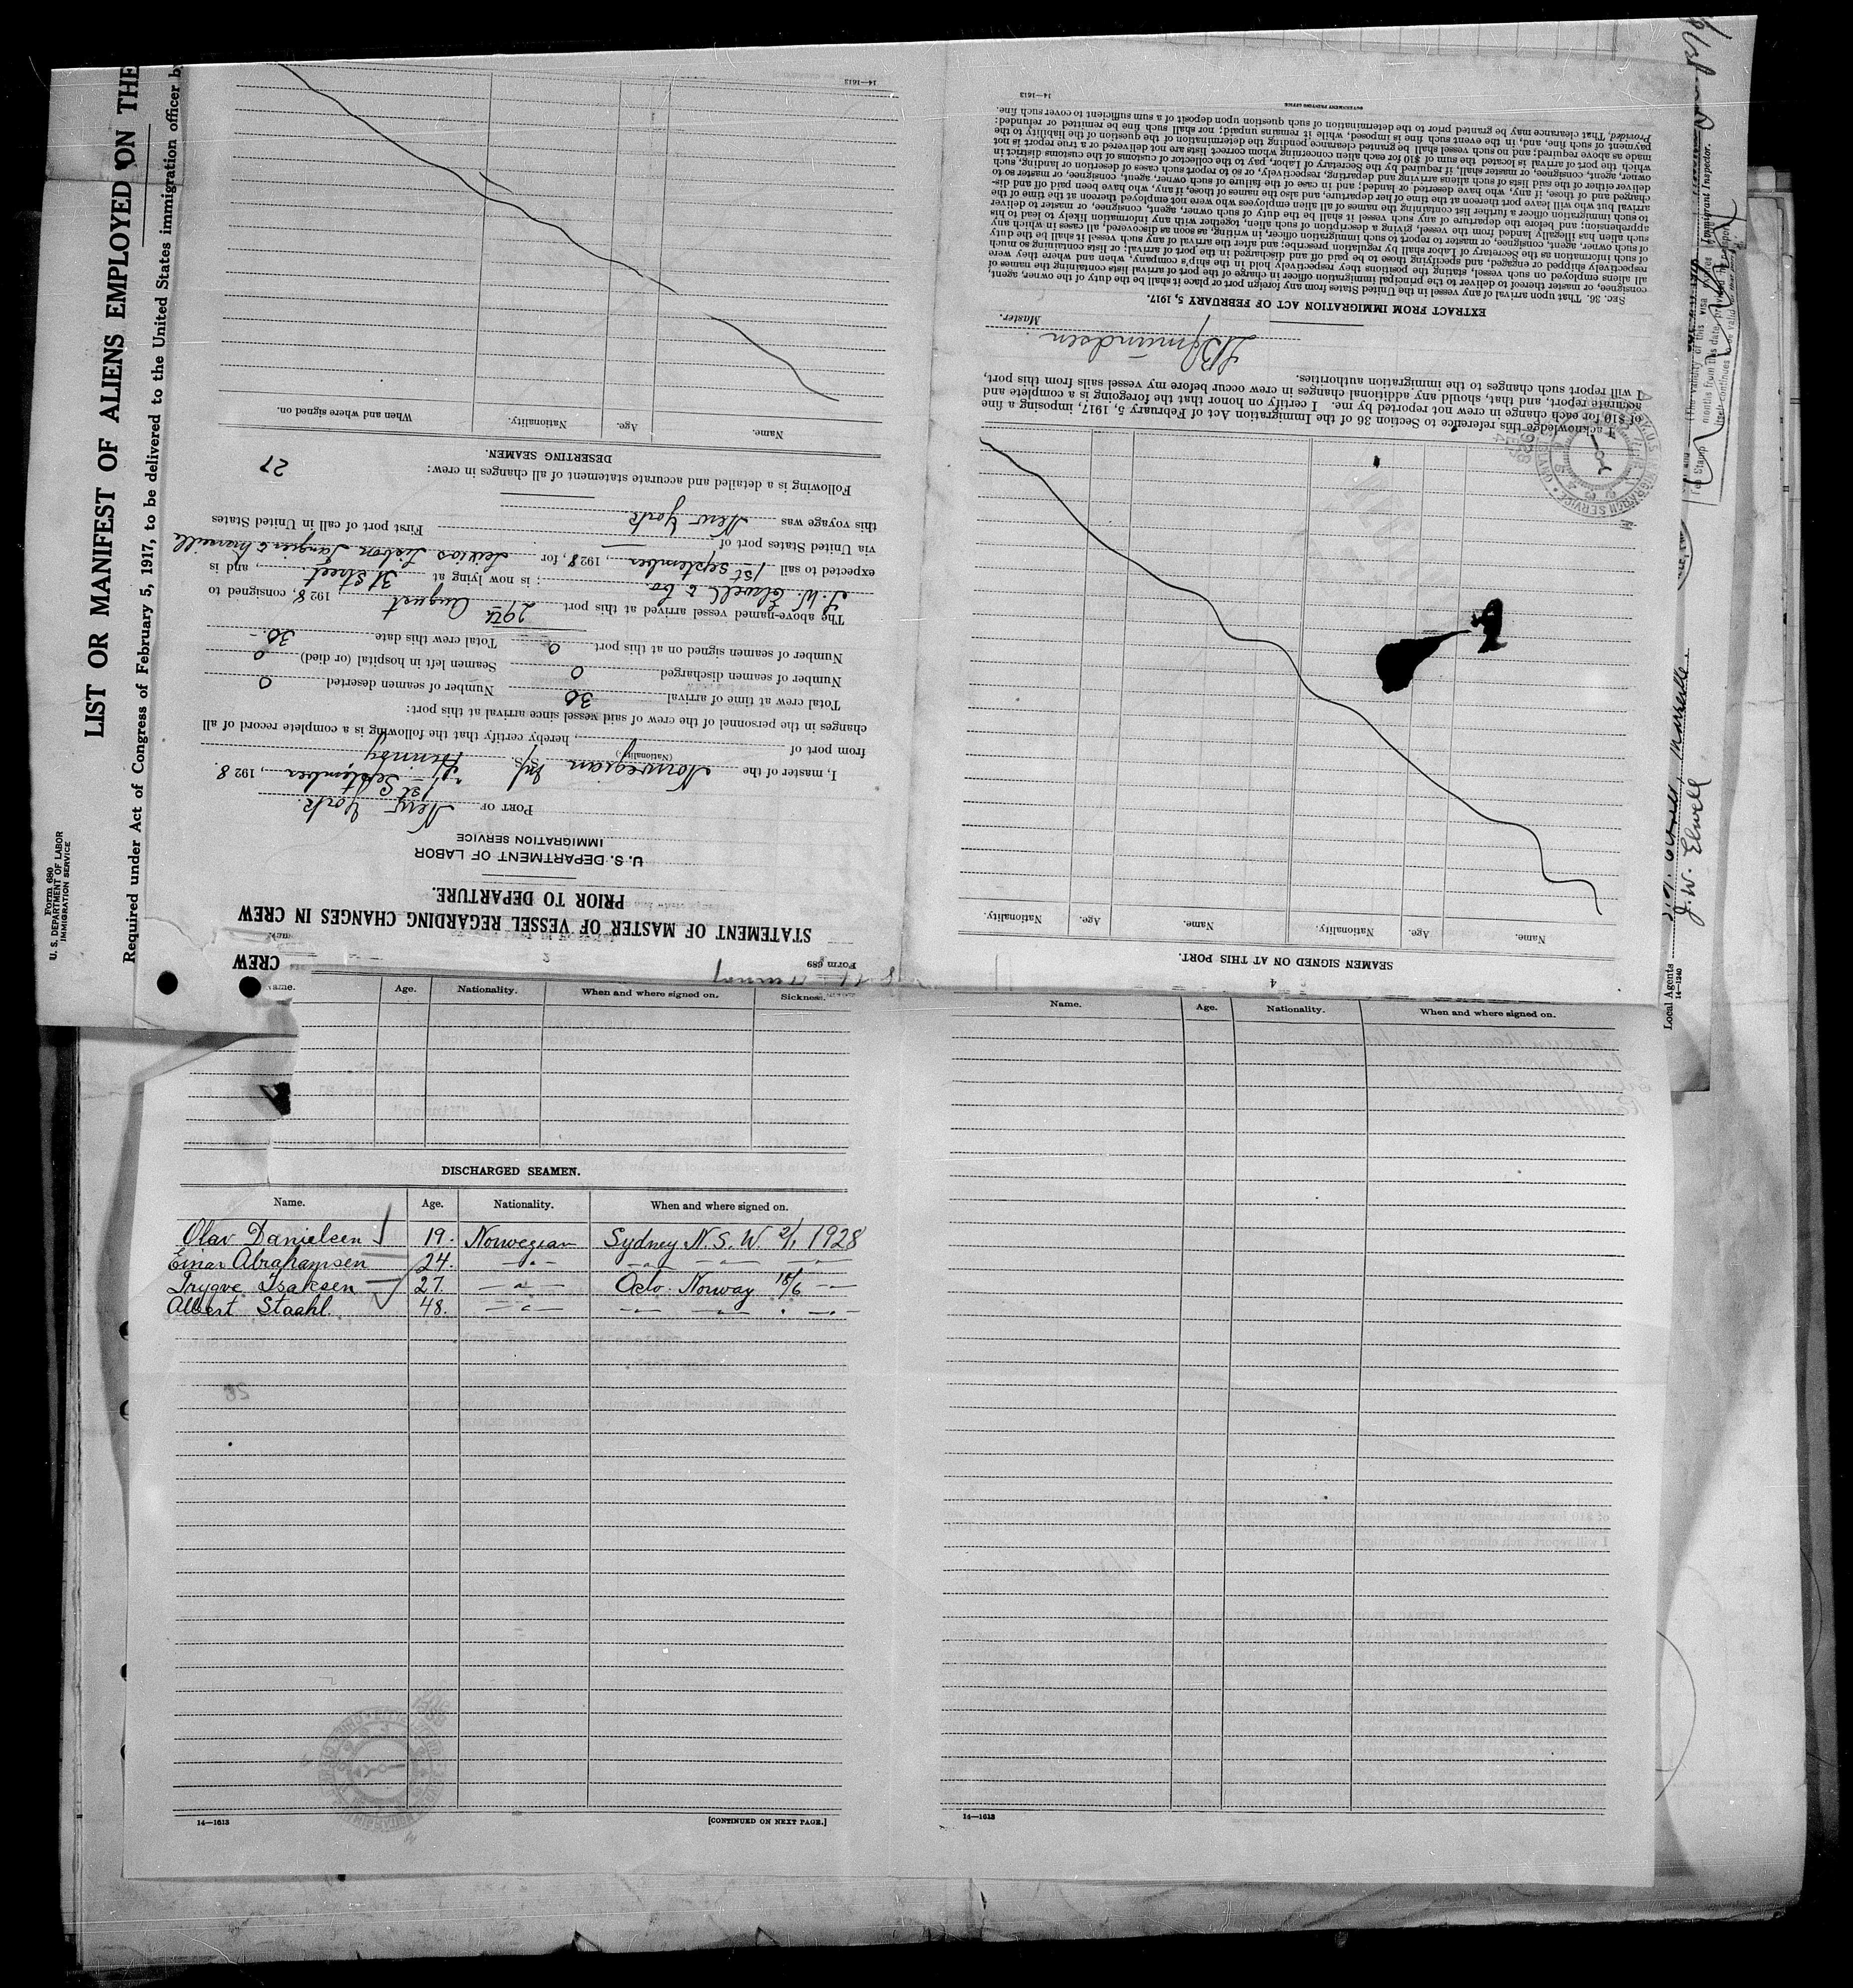 Form 680
U. S. DEPARTMENT OF LABOR
IMMIGRATION SERVICE
LIST OR MANIFEST OF ALIENS EMPLOYED ON THE
Required under Act of Congress of February 5, 1917, to be delivered to the United States immigration officer by
Form 689
CREW
STATEMENT OF MASTER OF VESSEL REGARDING CHANGES IN CREW
PRIOR TO DEPARTURE.
U. S. DEPARTMENT OF LABOR
IMMIGRATION SERVICE
PORT OF New York.
1st September, 1928.
I, master of the Norwegian M/S
(Nationality.)
from port of , hereby certify that the following is a complete record of all
changes in the personnel of the crew of said vessel since arrival at this port:
Total crew at time of arrival 30 Number of seamen deserted 0
Number of seamen discharged 0 Seamen left in hospital (or died) 0
Number of seamen signed on at this port 0 Total crew this date 30.-
The above-named vessel arrived at this port 29th August 1928, consigned to
J. W. Elwell & Co. ; is now lying at 31 street. , and is
expected to sail 1st September, 1928, for Lisbon Tangier & Marseille
via United States port of
this voyage was New York First port of call in United States
Following is a detailed and accurate statement of all changes in crew:
27
DESERTING SEAMEN.
Name. Age. Nationality. When and where signed on.
14—1613
4
SEAMEN SIGNED ON AT THIS PORT.
Name. Age. Nationality. Name. Age. Nationality.
I acknowledge this reference to Section 36 of the Immigration Act of February 5, 1917, imposing a fine
of $10 for each change in crew not reported by me. I certify on honor that the foregoing is a complete and
accurate report, and that, should any additional changes in crew occur before my vessel sails from this port,
I will report such changes to the immigration authorities.
Master.
EXTRACT FROM IMMIGRATION ACT OF FEBRUARY 5, 1917.
SEC. 36. That upon arrival of any vessel in the United States from any foreign port or place it shall be the duty of the owner, agent,
consignee, or master thereof to deliver to the principal immigration officer in charge of the port of arrival lists containing the names of
all aliens employed on such vessel, stating the positions they respectively hold in the ship's company, when and where they were
respectively shipped or engaged, and specifying those to be paid off and discharged in the port of arrival; or lists containing so much
of such information as the Secretary of Labor shall by regulation prescribe; and after the arrival of any such vessel it shall be the duty
of such owner, agent, consignee, or master to report to such immigration officer, in writing, as soon as discovered, all cases in which any
such alien has illegally landed from the vessel, giving a description of such alien, together with any information likely to lead to his
apprehension; and before the departure of any such vessel it shall be the duty of such owner, agent, consignee, or master to deliver
to such immigration officer a further list containing the names of all alien employees who were not employed thereon at the time of the
arrival but who will leave port thereon at the time of her departure, and also the names of those, if any, who have been paid off and dis-
charged and of those, if any, who have deserted or landed; and in case of the failure of such owner, agent, consignee, or master so to
deliver either of the said lists of such aliens arriving and departing, respectively, or so to report such cases of desertion or landing, such
owner, agent, consignee, or master shall, if required by the Secretary of Labor, pay to the collector of customs of the customs district in
which the port of arrival is located the sum of $10 for each alien concerning whom correct lists are not delivered or a true report is not
made as above required; and no such vessel shall be granted clearance pending the determination of the question of the liability to the
payment of such fine, and, in the event such fine is imposed, while it remains unpaid; nor shall such fine be remitted or refunded:
Provided, That clearance may be granted prior to the determination of such question upon deposit of a sum sufficient to cover such fine.
14—1613
GOVERNMENT PRINTING OFFICE
Immigrant Inspector.
Local Agents
J. W. Elwell
14—1240
Name. Age. Nationality. When and where signed on. Sickness.
DISCHARGED SEAMEN.
Name. Age. Nationality. When and where signed on.
Olav Danielsen 19. Norwegian Sydney N. S. W. 2/1 1928
Einar Abrahamsen 24. —"— —"— —"— —"—
Trygve Isaksen 27. —"— Oslo. Norway 18/6 —"—
Albert Staahl. 48. —"— —"— —"— " —"—
28
14—1613
[CONTINUED ON NEXT PAGE.]
Name. Age. Nationality. When and where signed on.
14—1613